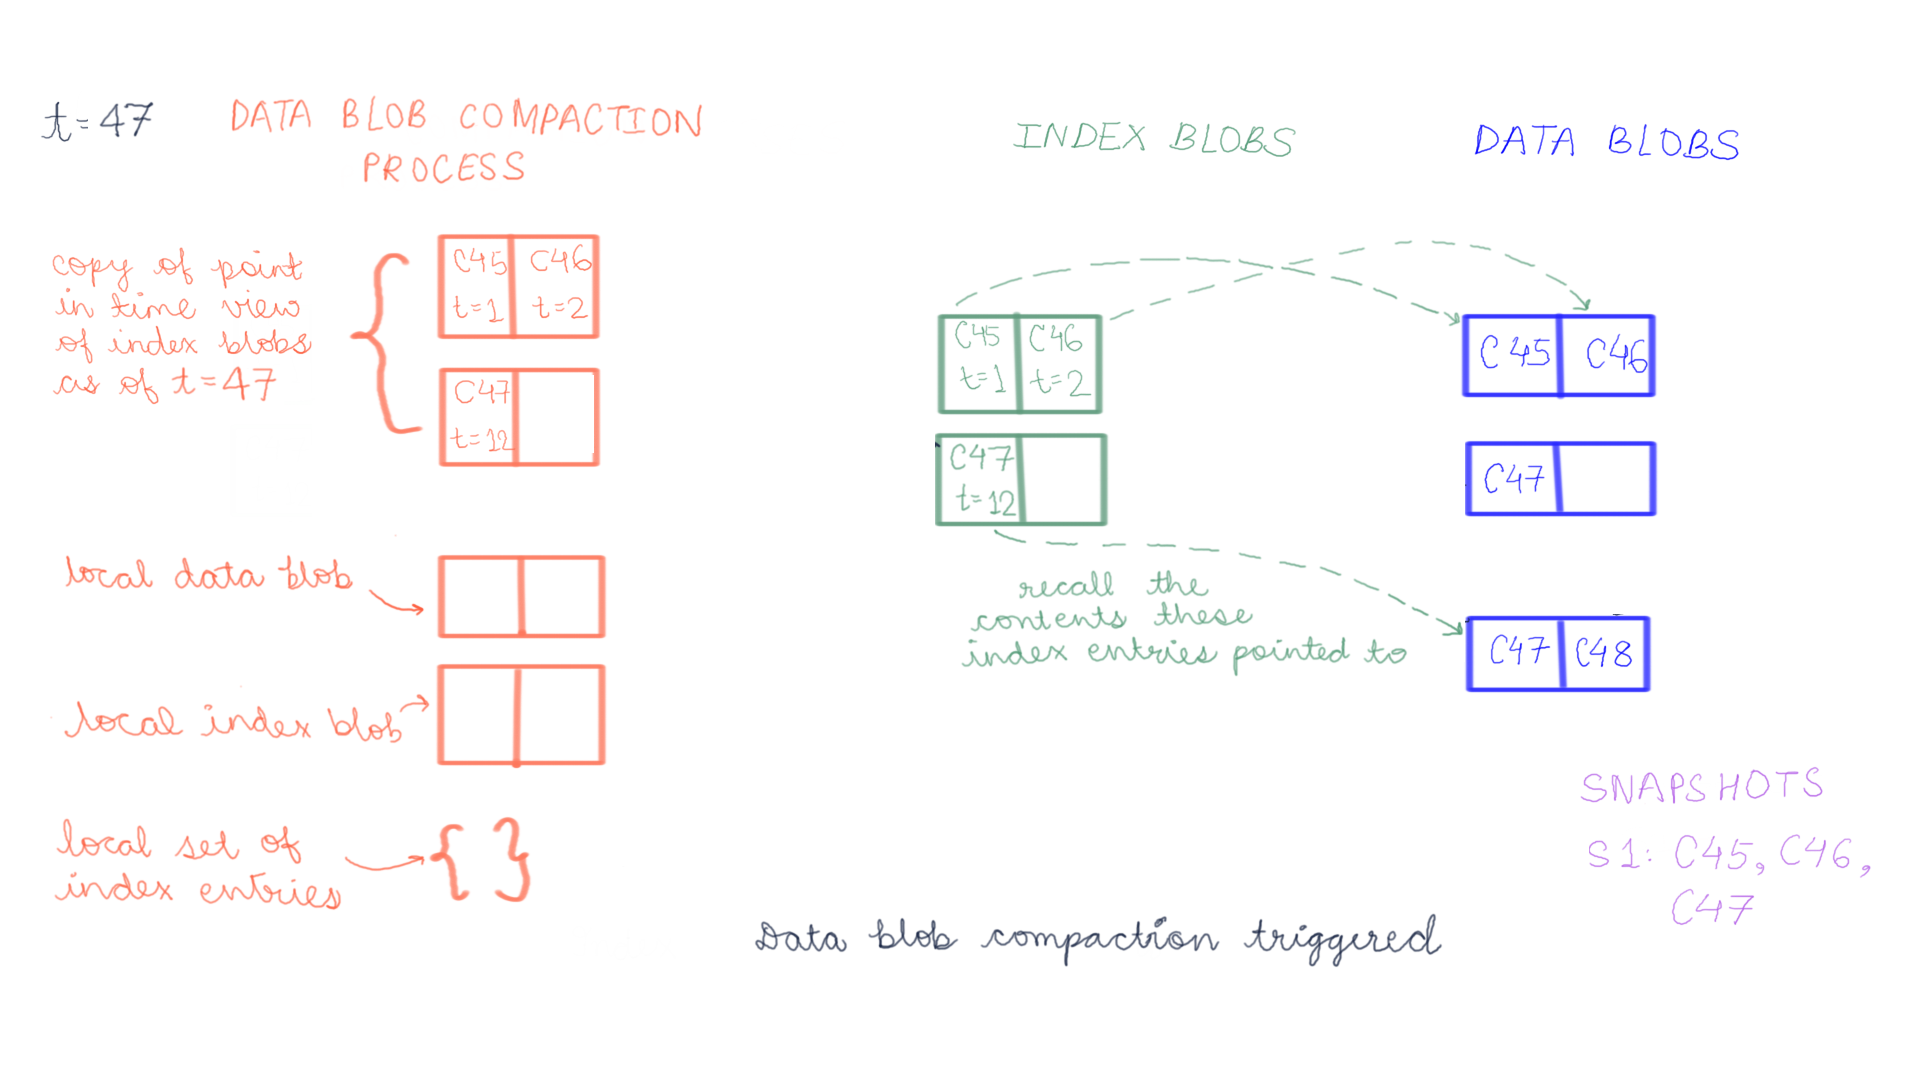 t=47
DATA BLOB COMPACTION
PROCESS
copy of point
in time view
of index blobs
as of t=47
C45 C46
t=1 t=2
C47
t=12
local data blob
local index blob
local set of
index entries
{ }
INDEX BLOBS
C45 C46
t=1 t=2
C47
t=12
recall the
contents these
index entries pointed to
DATA BLOBS
C45 C46
C47
C47 C48
SNAPSHOTS
S1: C45, C46,
C47
Data blob compaction triggered